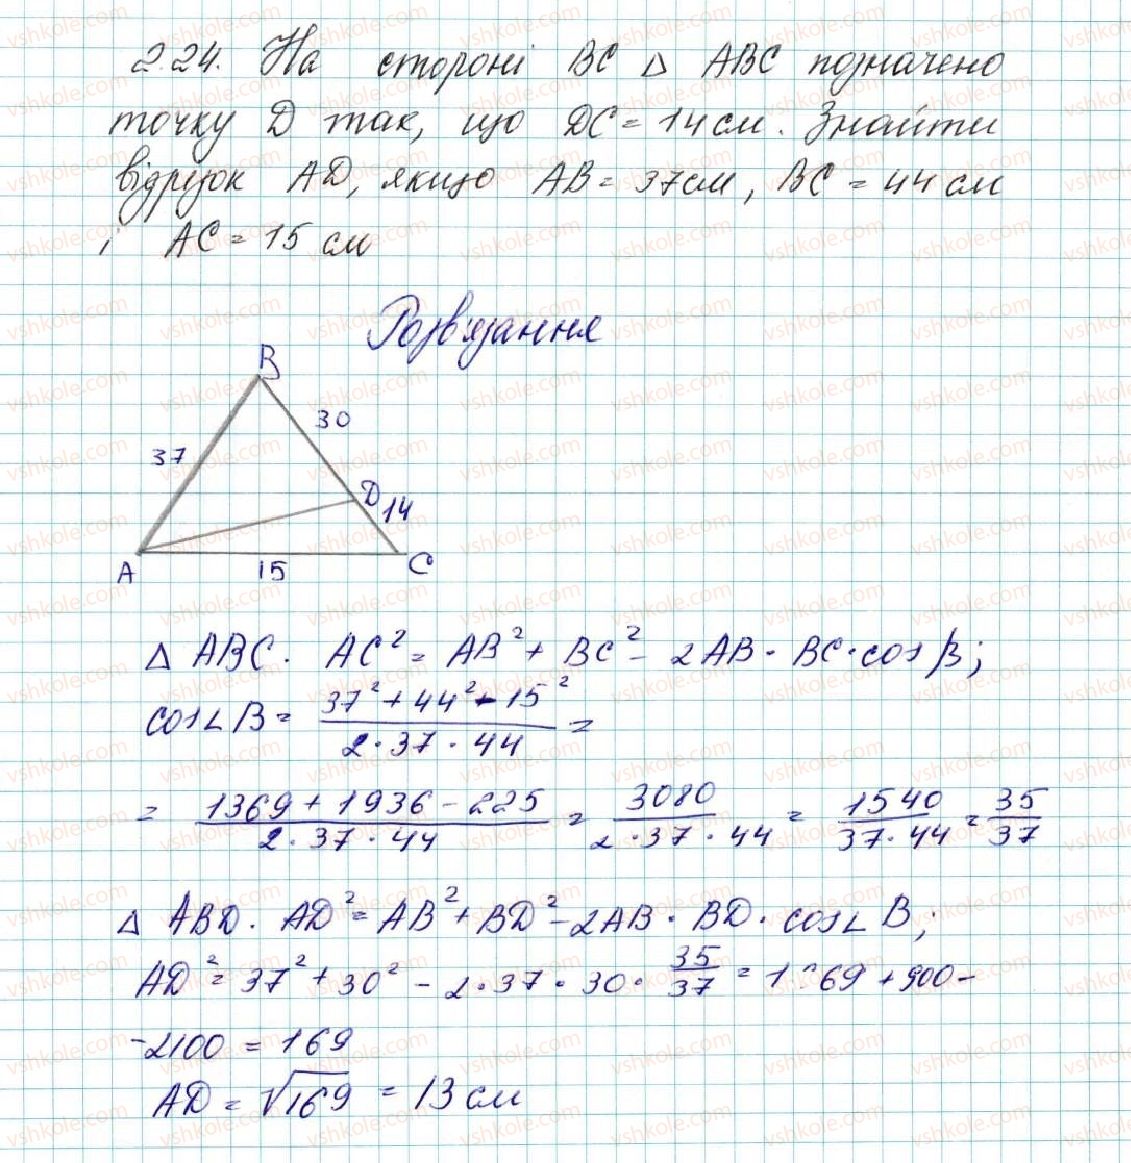 2.24. На стороні BC Δ ABC позначено
точку D так, що DC = 14 см. Знайти
відрізок AD, якщо AB = 37 см, BC = 44 см
і AC = 15 см
Розв'язання
B
30
37
D 14
A 15 C
Δ ABC. AC² = AB² + BC² - 2AB · BC · cos B;
cos∠B = (37² + 44² - 15²)/(2 · 37 · 44) =
= (1369 + 1936 - 225)/(2 · 37 · 44) = 3080/(2 · 37 · 44) = 1540/(37 · 44) = 35/37
Δ ABD. AD² = AB² + BD² - 2AB · BD · cos∠B;
AD² = 37² + 30² - 2 · 37 · 30 · 35/37 = 1369 + 900 -
- 2100 = 169
AD = √169 = 13 см
vshkole.com